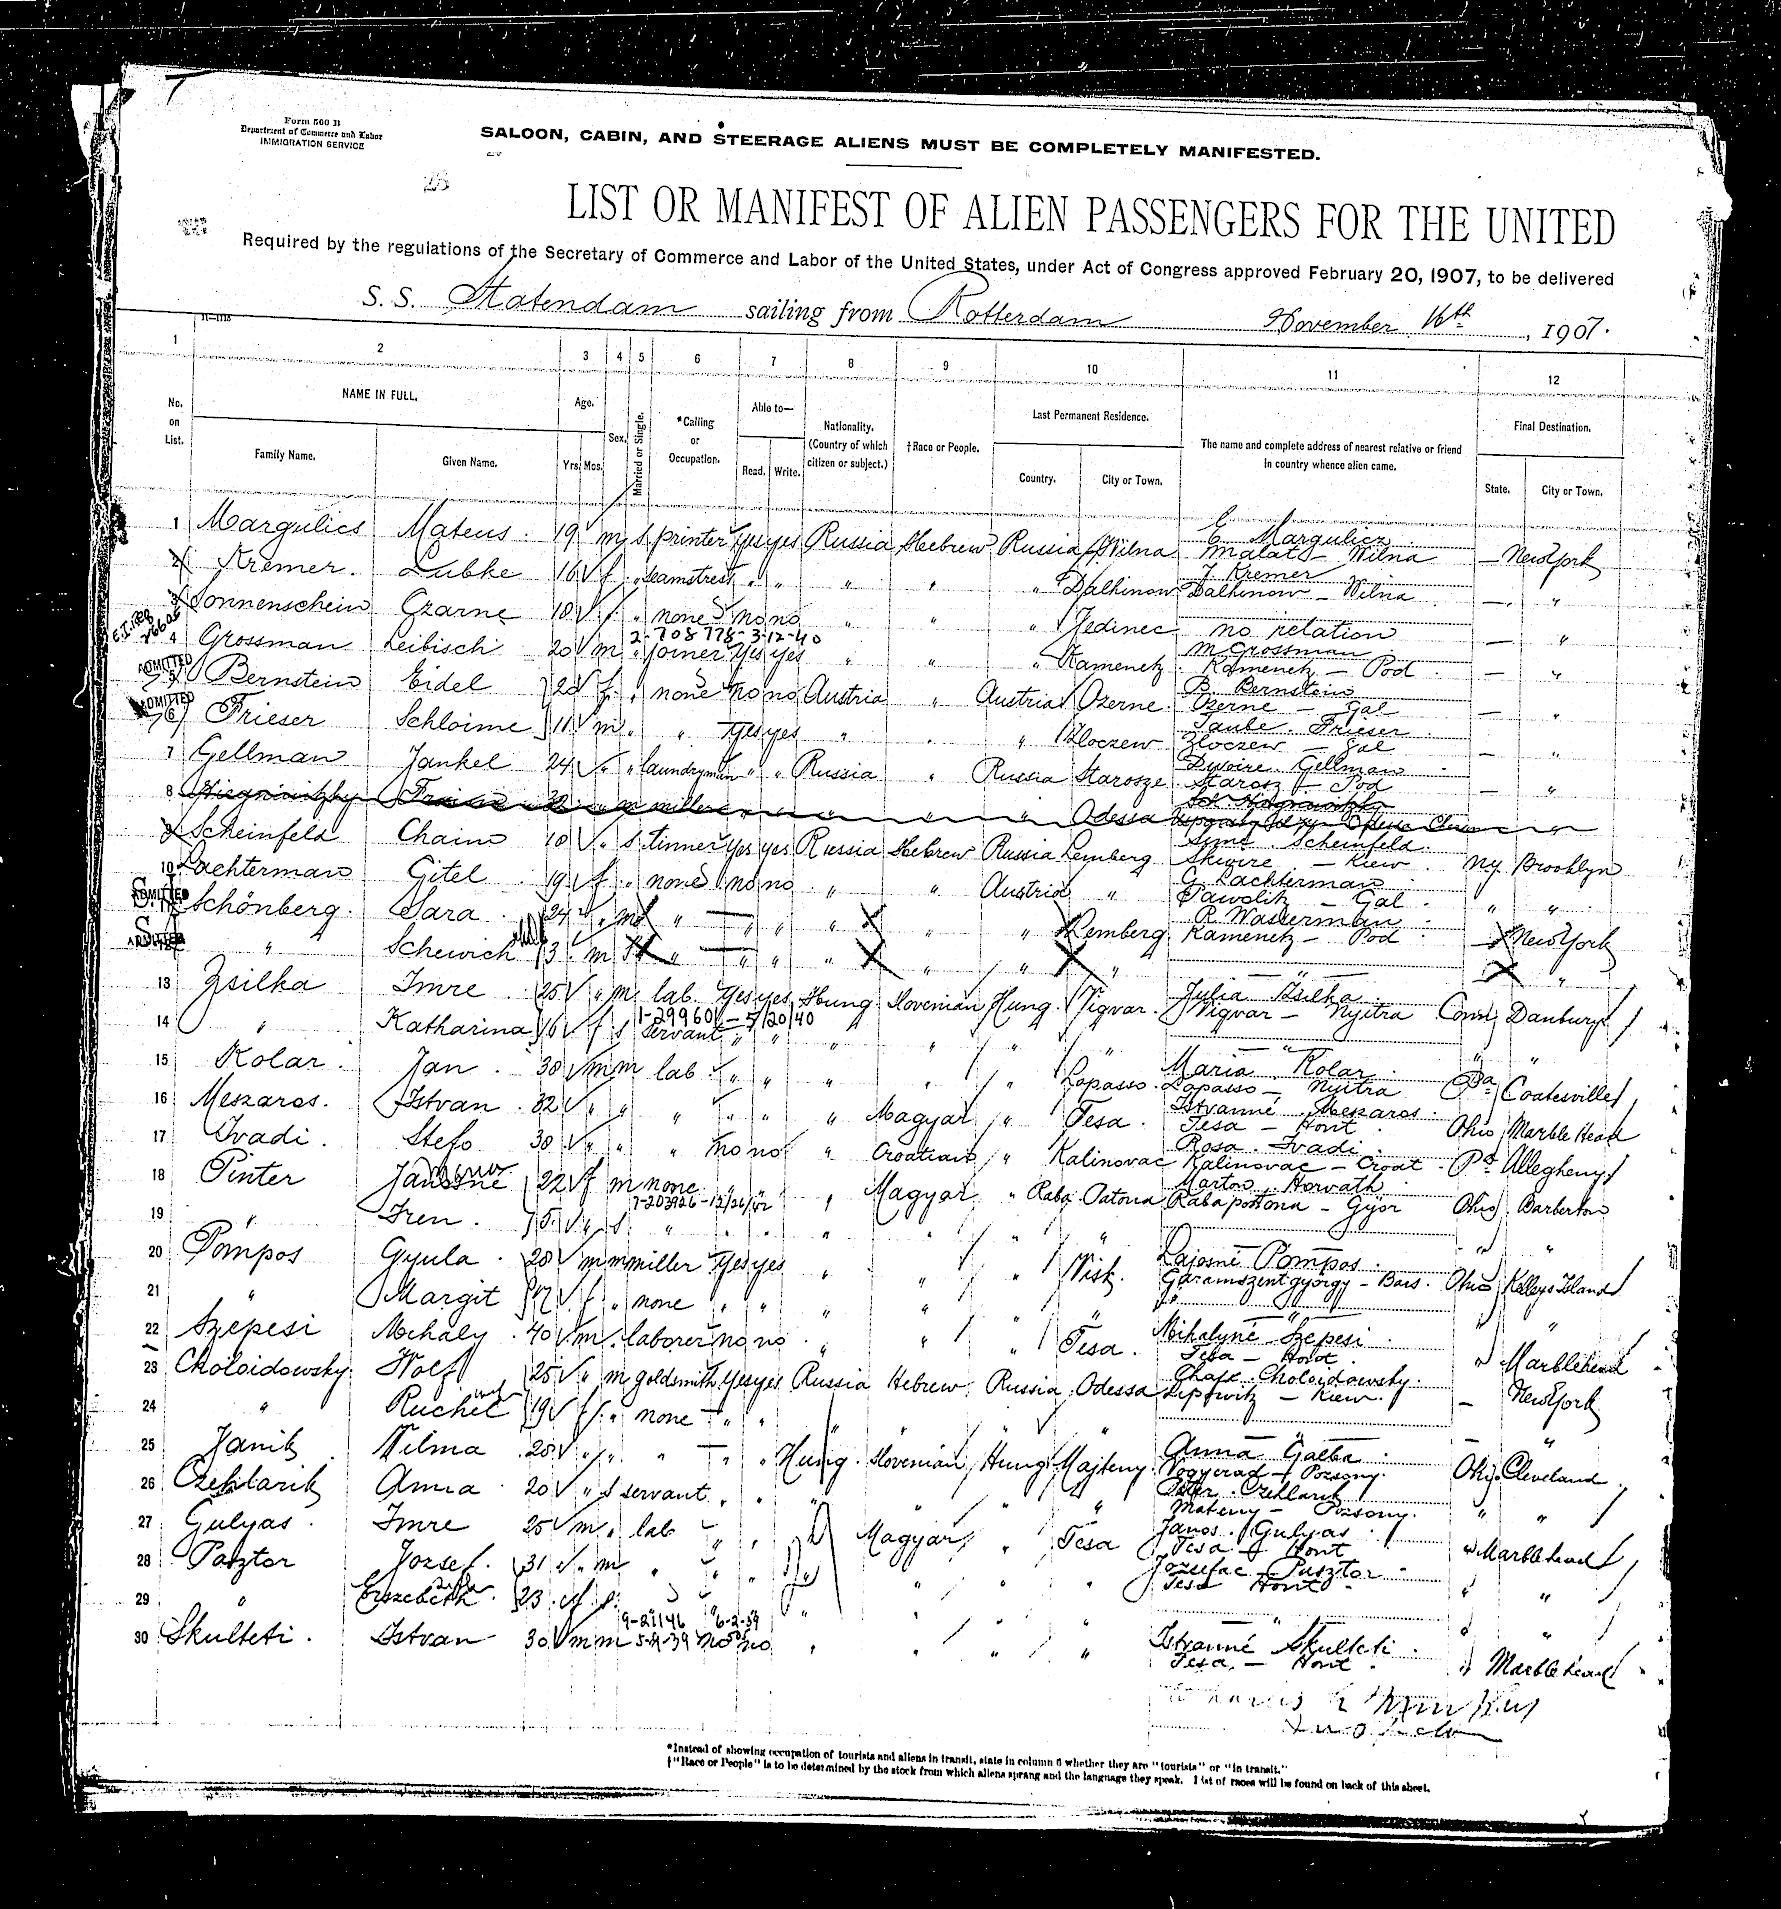 Form 500 B
Department of Commerce and Labor
IMMIGRATION SERVICE
SALOON, CABIN, AND STEERAGE ALIENS MUST BE COMPLETELY MANIFESTED.
LIST OR MANIFEST OF ALIEN PASSENGERS FOR THE UNITED
Required by the regulations of the Secretary of Commerce and Labor of the United States, under Act of Congress approved February 20, 1907, to be delivered
S. S. Statendam sailing from Rotterdam November 16th, 1907.
1 2 3 4 5 6 7 8 9 10 11 12
No. on List. NAME IN FULL. Age. Sex. Married or Single. *Calling or Occupation. Able to— Nationality. (Country of which citizen or subject.) †Race or People. Last Permanent Residence. The name and complete address of nearest relative or friend in country whence alien came. Final Destination.
Family Name. Given Name. Yrs. Mos. Read. Write. Country. City or Town. State. City or Town.
1 Margulies Mateus 19 m s printer yes yes Russia Hebrew Russia Wilna E. Margulies Malat - Wilna — New York
2 Kremer Lubke 16 f " seamstress " " " " " Dalhinow J Kremer Dalhinow - Wilna — "
3 Sonnenschein Czarne 18 f " none no no " " " Jedinec no relation — "
2-708778-3-12-40
4 Grossman Leibisch 20 m " joiner yes yes " " " Kamenetz M Grossman Kamenetz - Pod — "
ADMITTED
5 Bernstein Eidel 20 f " none no no Austria " Austria Ozerne B. Bernstein Ozerne - Gal — "
ADMITTED
6 Frieser Schloime 11 m " " yes yes " " " Zloczew Taube Frieser Zloczew - Gal — "
7 Gellman Jankel 24 " " laundryman " " Russia " Russia Starosze Dwoire Gellman Starosz - Pod — "
8 m miller " " " " " Odessa "
9 Scheinfeld Chaim 18 " s tinner yes yes Russia Hebrew Russia Lemberg Scheinfeld Skwire - Kiew NY Brooklyn
10 Lachterman Gitel 19 f " none no no " " Austria " G. Lachterman - Gal " "
ADMITTED
Schönberg Sara 24 " m " — " " " " " Lemberg R. Wasserman Kamenetz - Pod — New York
ADMITTED
" 3 m " — " " " " " " — " — "
13 Zsilka Imre 25 " m lab yes yes Hung. Slovenian Hung. Vigvar Julia Zsilka Vigvar - Nyitra Conn Danbury
1-299601-5/20/40
14 " Katharina 16 f s servant " " " " " " — " — " "
15 Kolar Jan 38 m m lab " " " " " Lopasso Maria Kolar Lopasso - Nyitra Pa Coatesville
16 Meszaros Istvan 32 " " " " " " Magyar " Tesa Istvanné Meszaros Tesa - Hont Ohio Marble Head
17 Ivadi Stefo 38 " " " no no " Croatian " Kalinovac Rosa Ivadi Kalinovac - Croat Pa Allegheny
18 Pinter Janosne 22 f m none " " " Magyar " Raba Patona Marton Horvath Rabapottona - Györ Ohio Barberton
19 " Iren 5 " s " " " " " " " " "
20 Pompos Gyula 28 m m miller yes yes " " " Visk Lajosné Pompos Garamszentgyörgy - Bars Ohio Kelleys Island
21 " Margit 17 f " none " " " " " " — " — " "
22 Szepesi Mihaly 40 m " laborer no no " " " Tesa Mihalyné Szepesi Tesa - Hont " Marblehead
23 Choloidowsky Wolf 25 " m goldsmith yes yes Russia Hebrew Russia Odessa Choloidowsky Lipowitz - Kiew — New York
24 " Ruchel 19 f " none — " " " " " " — " — — "
25 Janik Vilma 28 " " " — " " Hung. Slovenian Hung. Majteny Anna Galba - Pozsony Ohio Cleveland
26 Czehlarik Anna 20 " s servant " " " " " " Peter Czehlarik Mateny - Pozsony " "
27 Gulyas Imre 25 m " lab " " " Magyar " Tesa Janos Gulyas Tesa - Hont " Marblehead
28 Pasztor Jozsef 31 " m " " " " " " " Jozsefne Pasztor Tesa Hont " "
29 " Erszebeth 23 f s " " " " — " — " "
9-21146 6-2-59
30 Skulteti Istvan 30 m m 5-9-39 no no " " " " Istvanné Skulteti Tesa - Hont " Marblehead
*Instead of showing occupation of tourists and aliens in transit, state in column 6 whether they are "tourists" or "in transit."
†"Race or People" is to be determined by the stock from which aliens sprang and the language they speak. List of races will be found on back of this sheet.